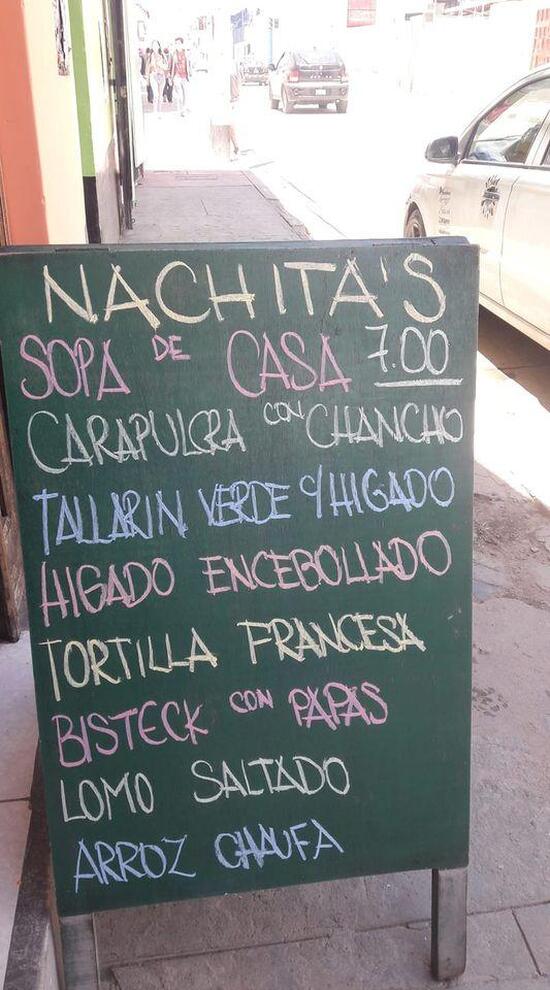 NACHITA'S
SOPA DE CASA 7.00
CARAPULCRA CON CHANCHO
TALLARIN VERDE C/HIGADO
HIGADO ENCEBOLLADO
TORTILLA FRANCESA
BISTECK CON PAPAS
LOMO SALTADO
ARROZ CHAUFA